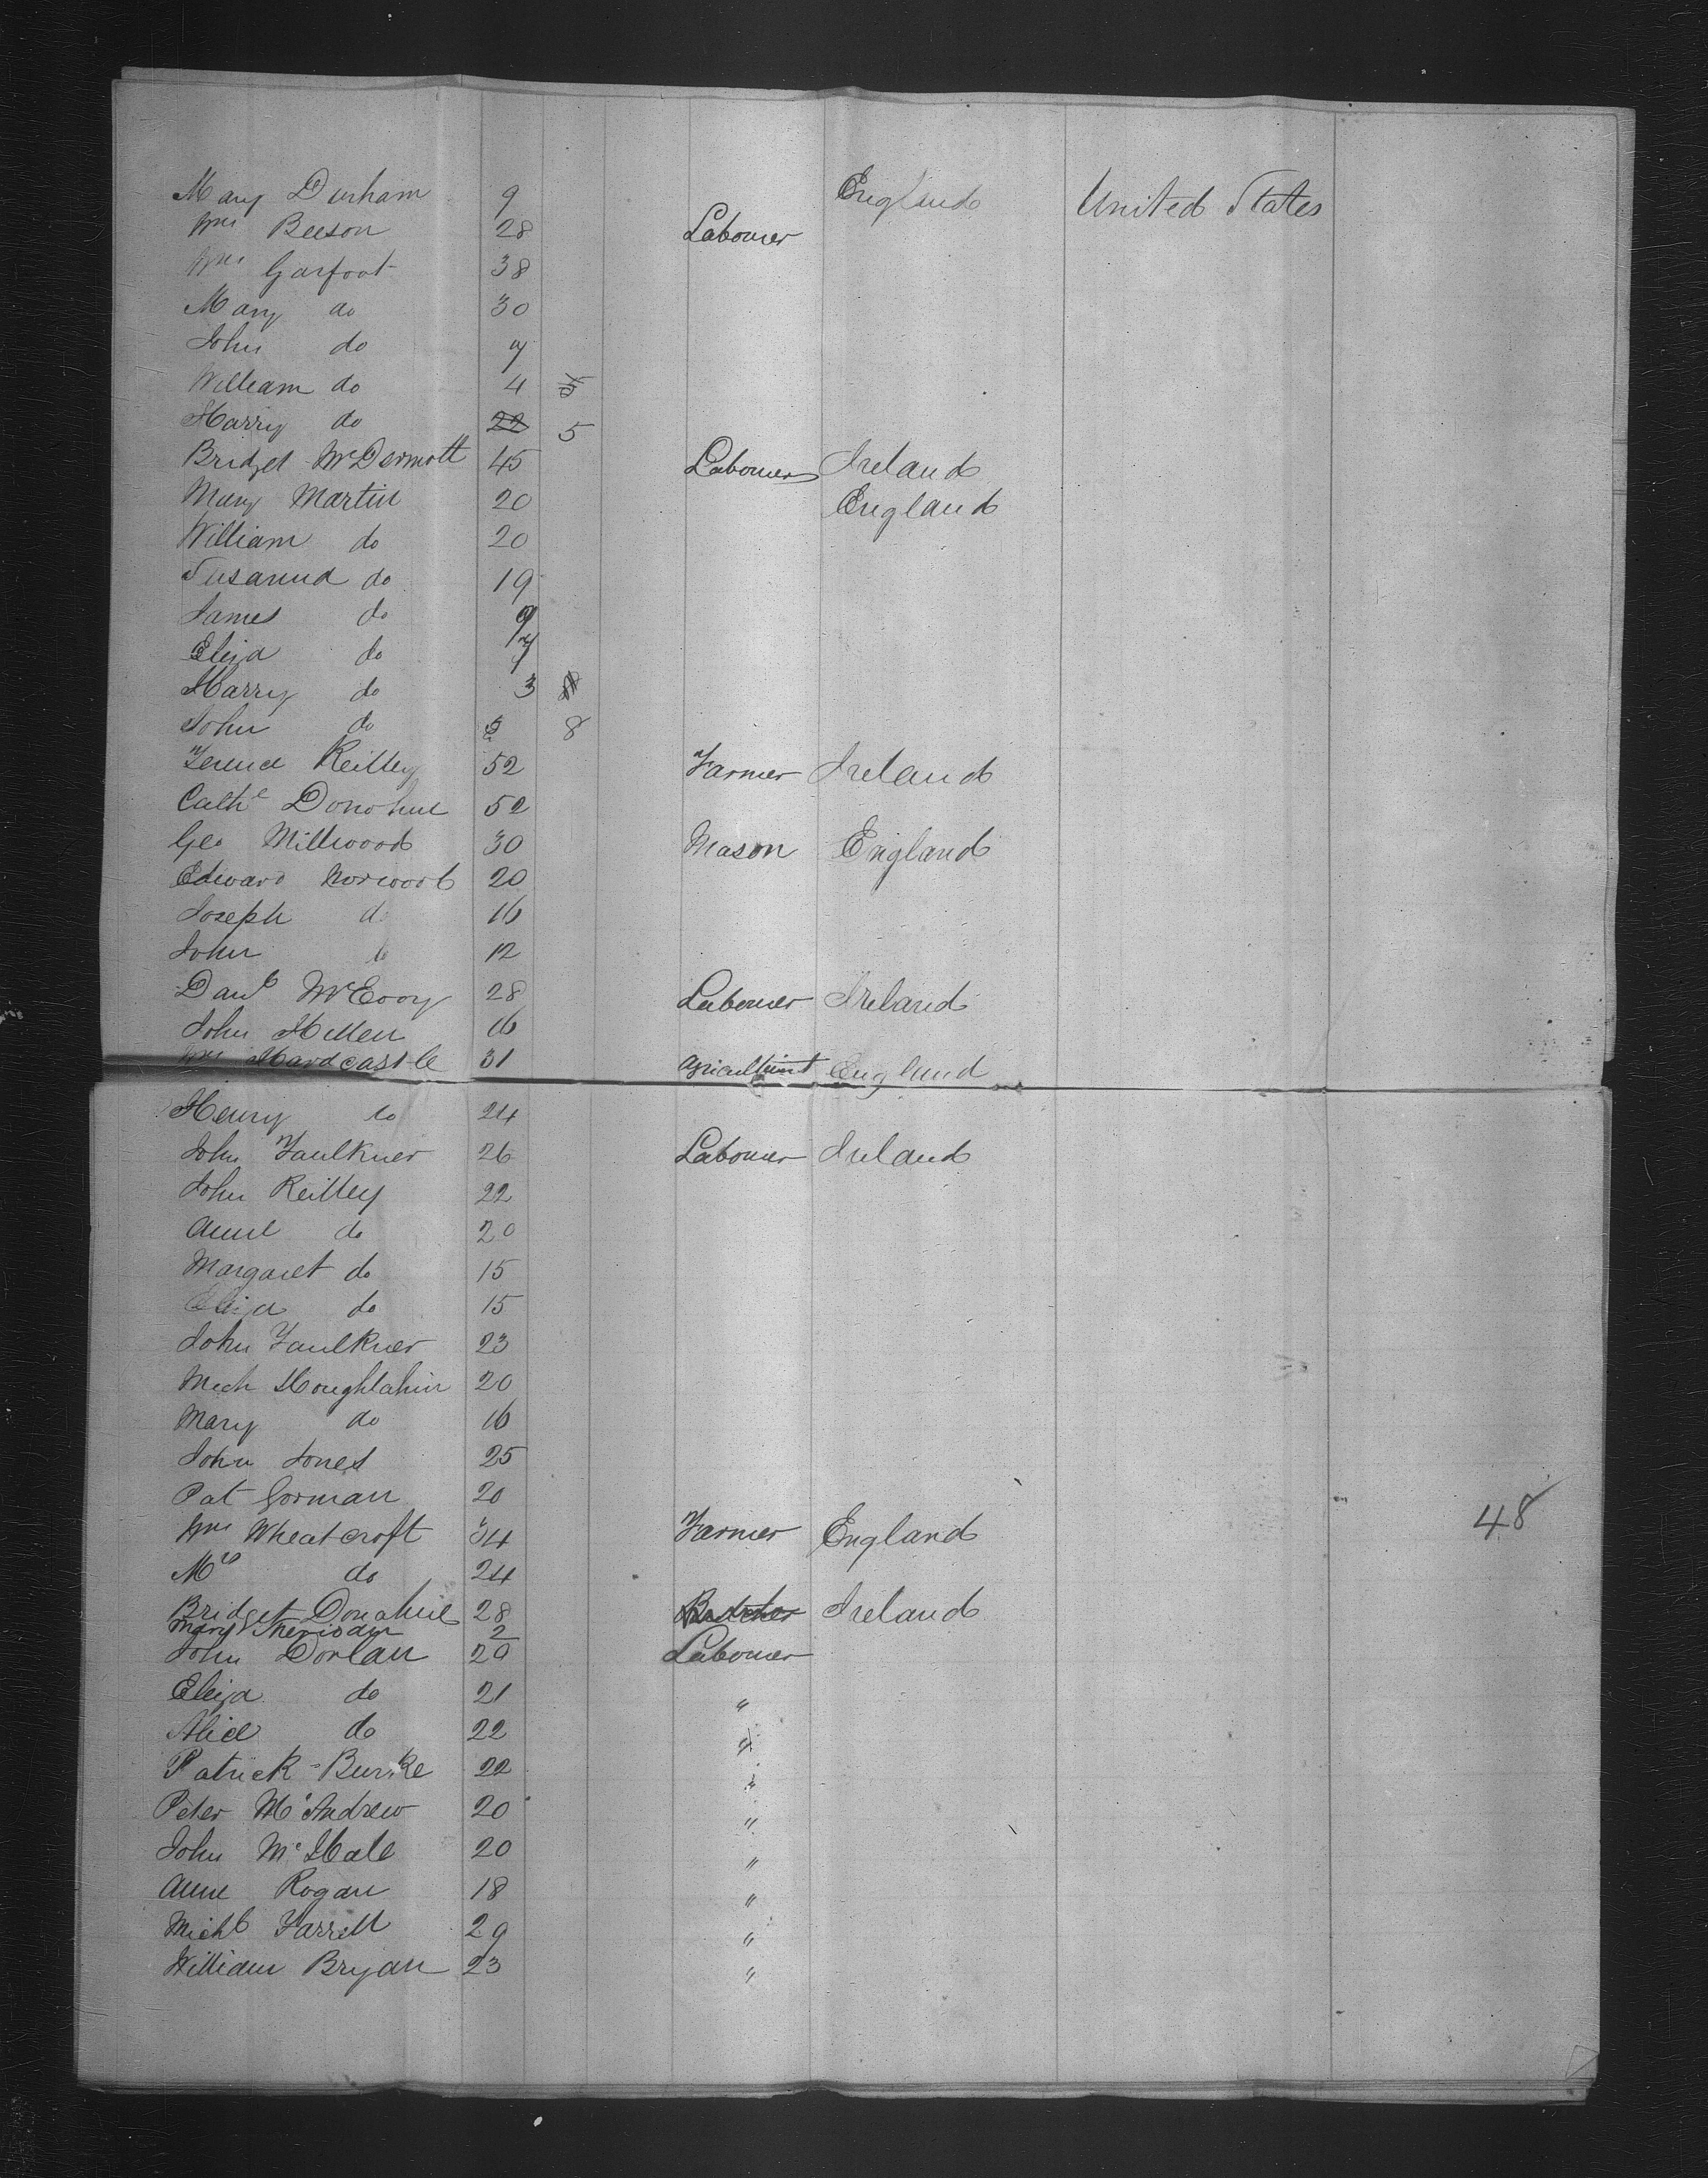 Mary Durham 9 England United States
Wm Beeson 28 Labourer
Wm Garfoot 38
Mary do 30
John do 7
William do 4
Harry do 22 5
Bridget McDermott 45 Labourer Ireland
Mary Martin 20 England
William do 20
Susanna do 19
James do 9
Eliza do 7
Harry do 3
John do 8
Terence Reilley 52 Farmer Ireland
Cathe Donohue 52
Geo Millwood 30 Mason England
Edward Norwood 20
Joseph do 16
John do 12
Danl McEvoy 28 Labourer Ireland
John Hillen 16
Wm Hardcastle 31 England
Henry do 24
John Faulkner 26 Labourer Ireland
John Reilley 22
Anne do 20
Margaret do 15
Eliza do 15
John Faulkner 23
Mich Houghlahin 20
Mary do 16
John Jones 25
Pat Gorman 20
Wm Wheatcroft 34 Farmer England 48
do 24
Bridget Donahue 28 Butcher Ireland
Mary Sheridan 2
John Dorlan 20 Labourer
Eliza do 21 "
Alice do 22 "
Patrick Burke 22 "
Peter McAndrew 20 "
John McHale 20 "
Anne Rogan 18 "
Michl Farrell 29 "
William Bryan 23 "